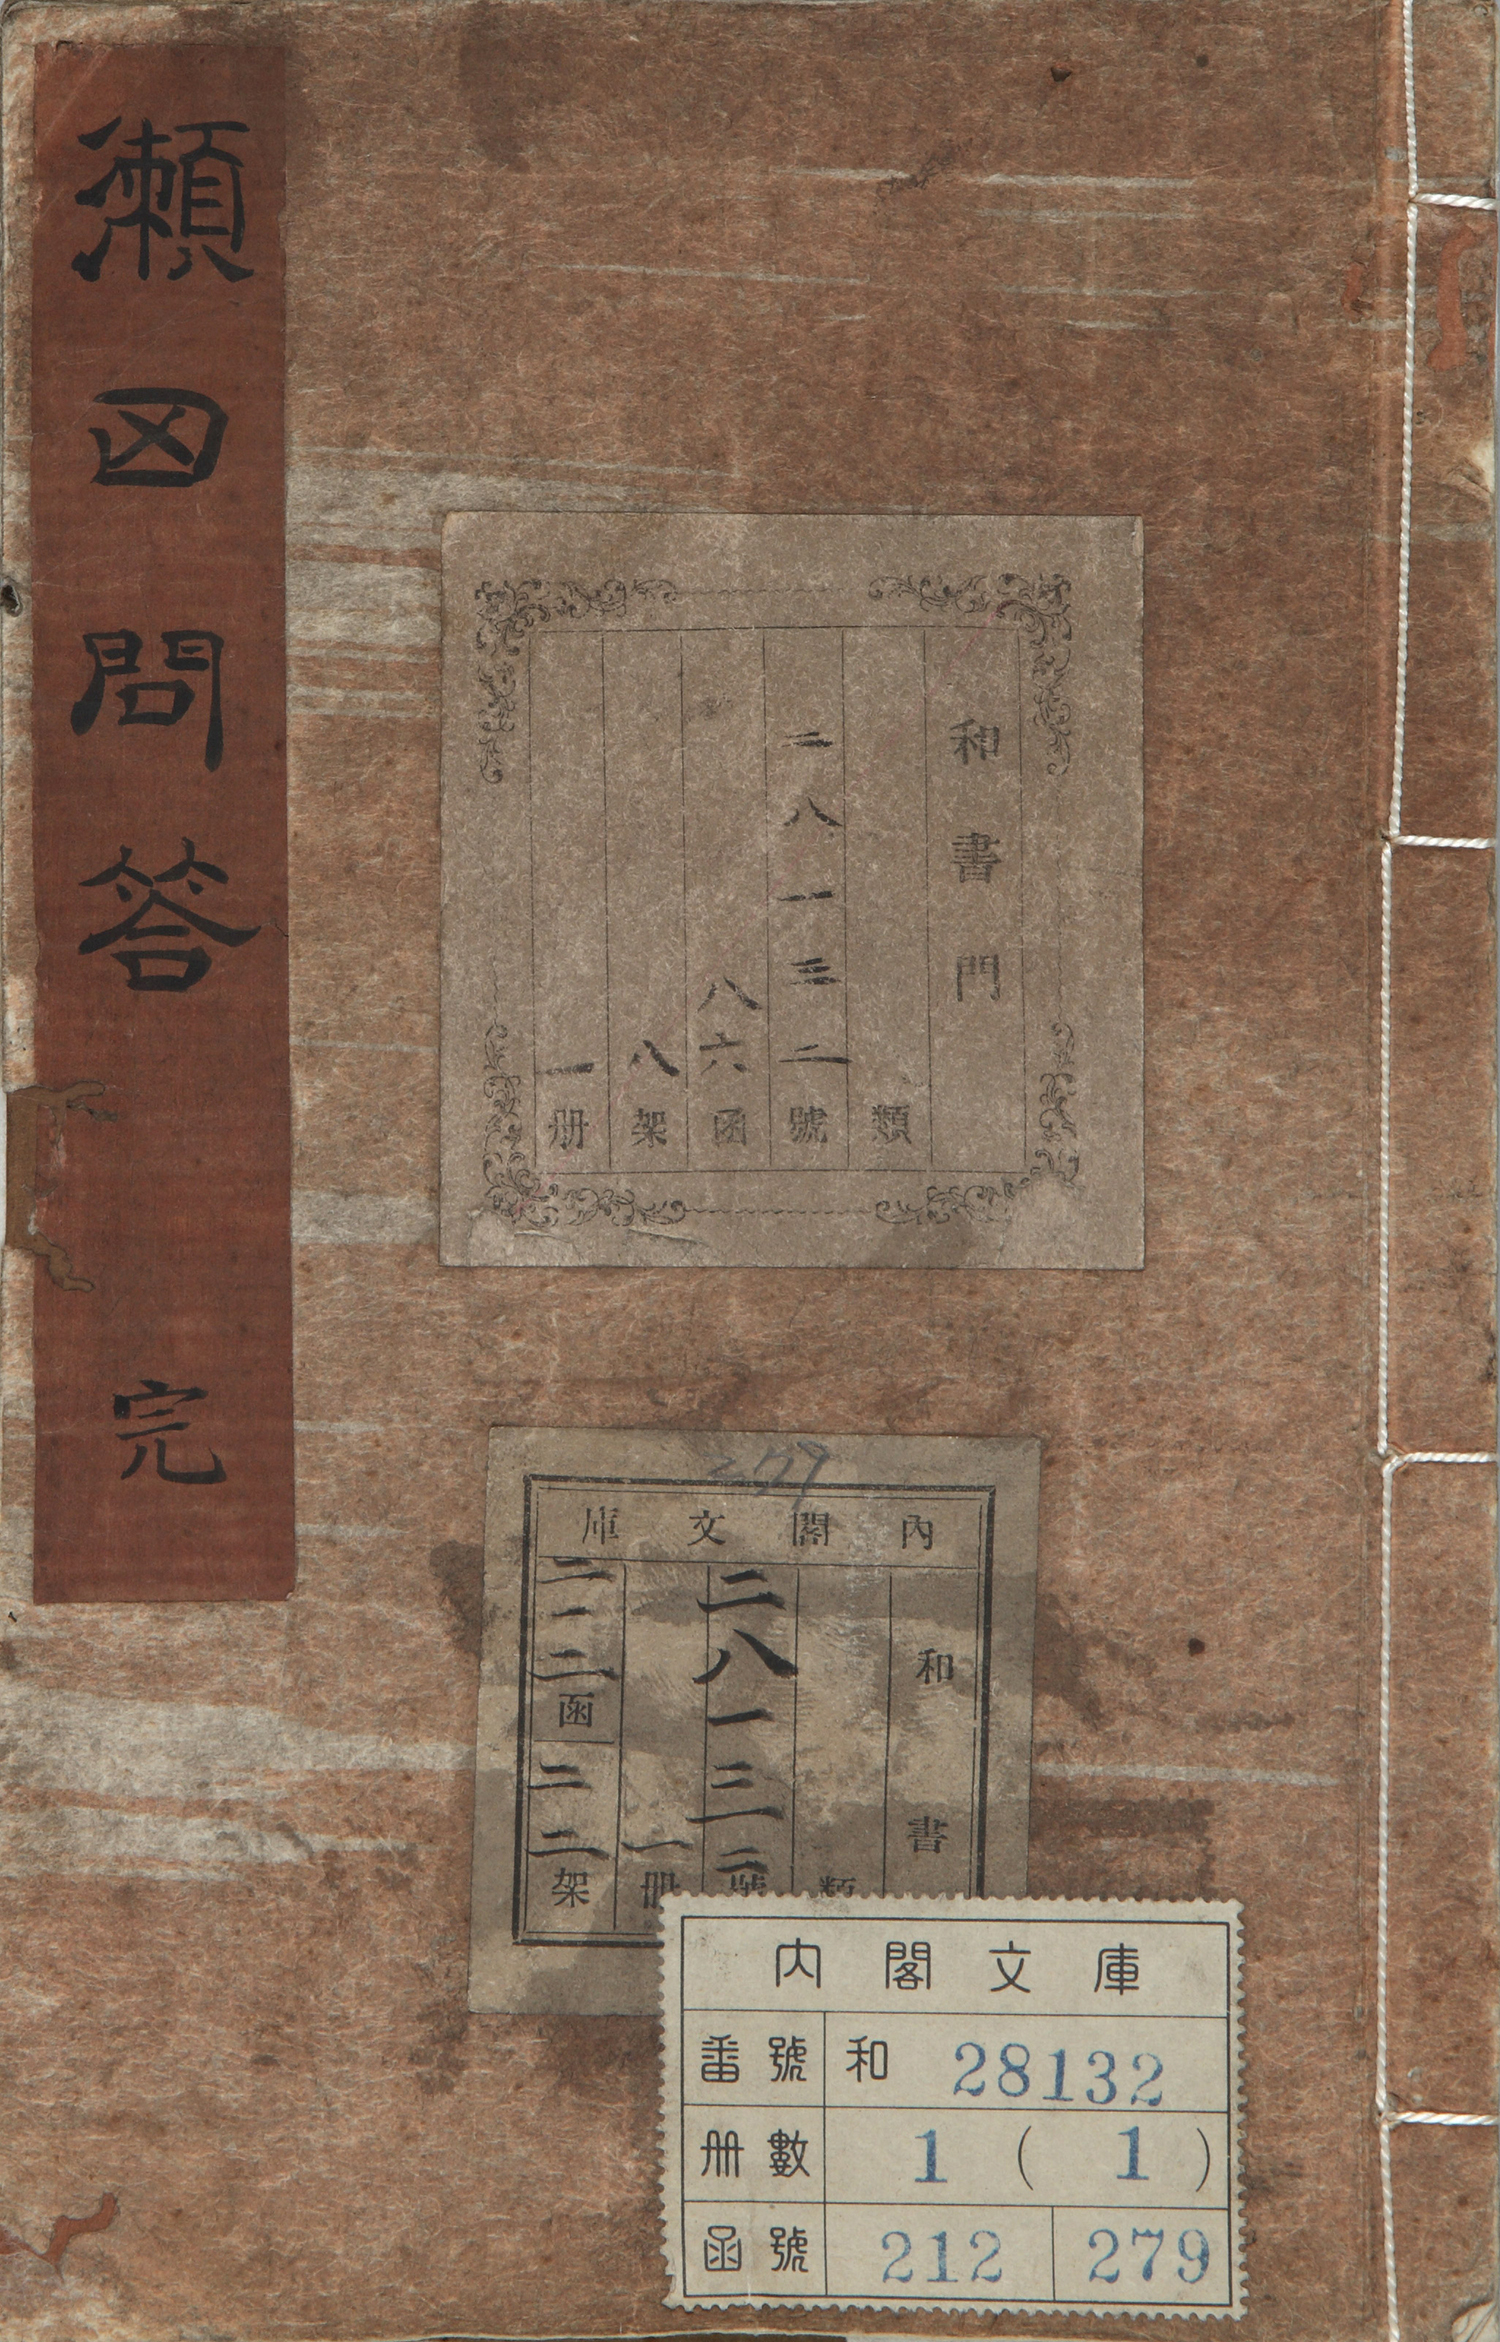 瀬田問答 完
和書門
類
二八一三二號
八六函
八架
一冊
279
內閣文庫
和書
類
二八一三二號
一冊
二一二函
二二架
内閣文庫
番號 和 28132
冊數 1 ( 1 )
函號 212 279